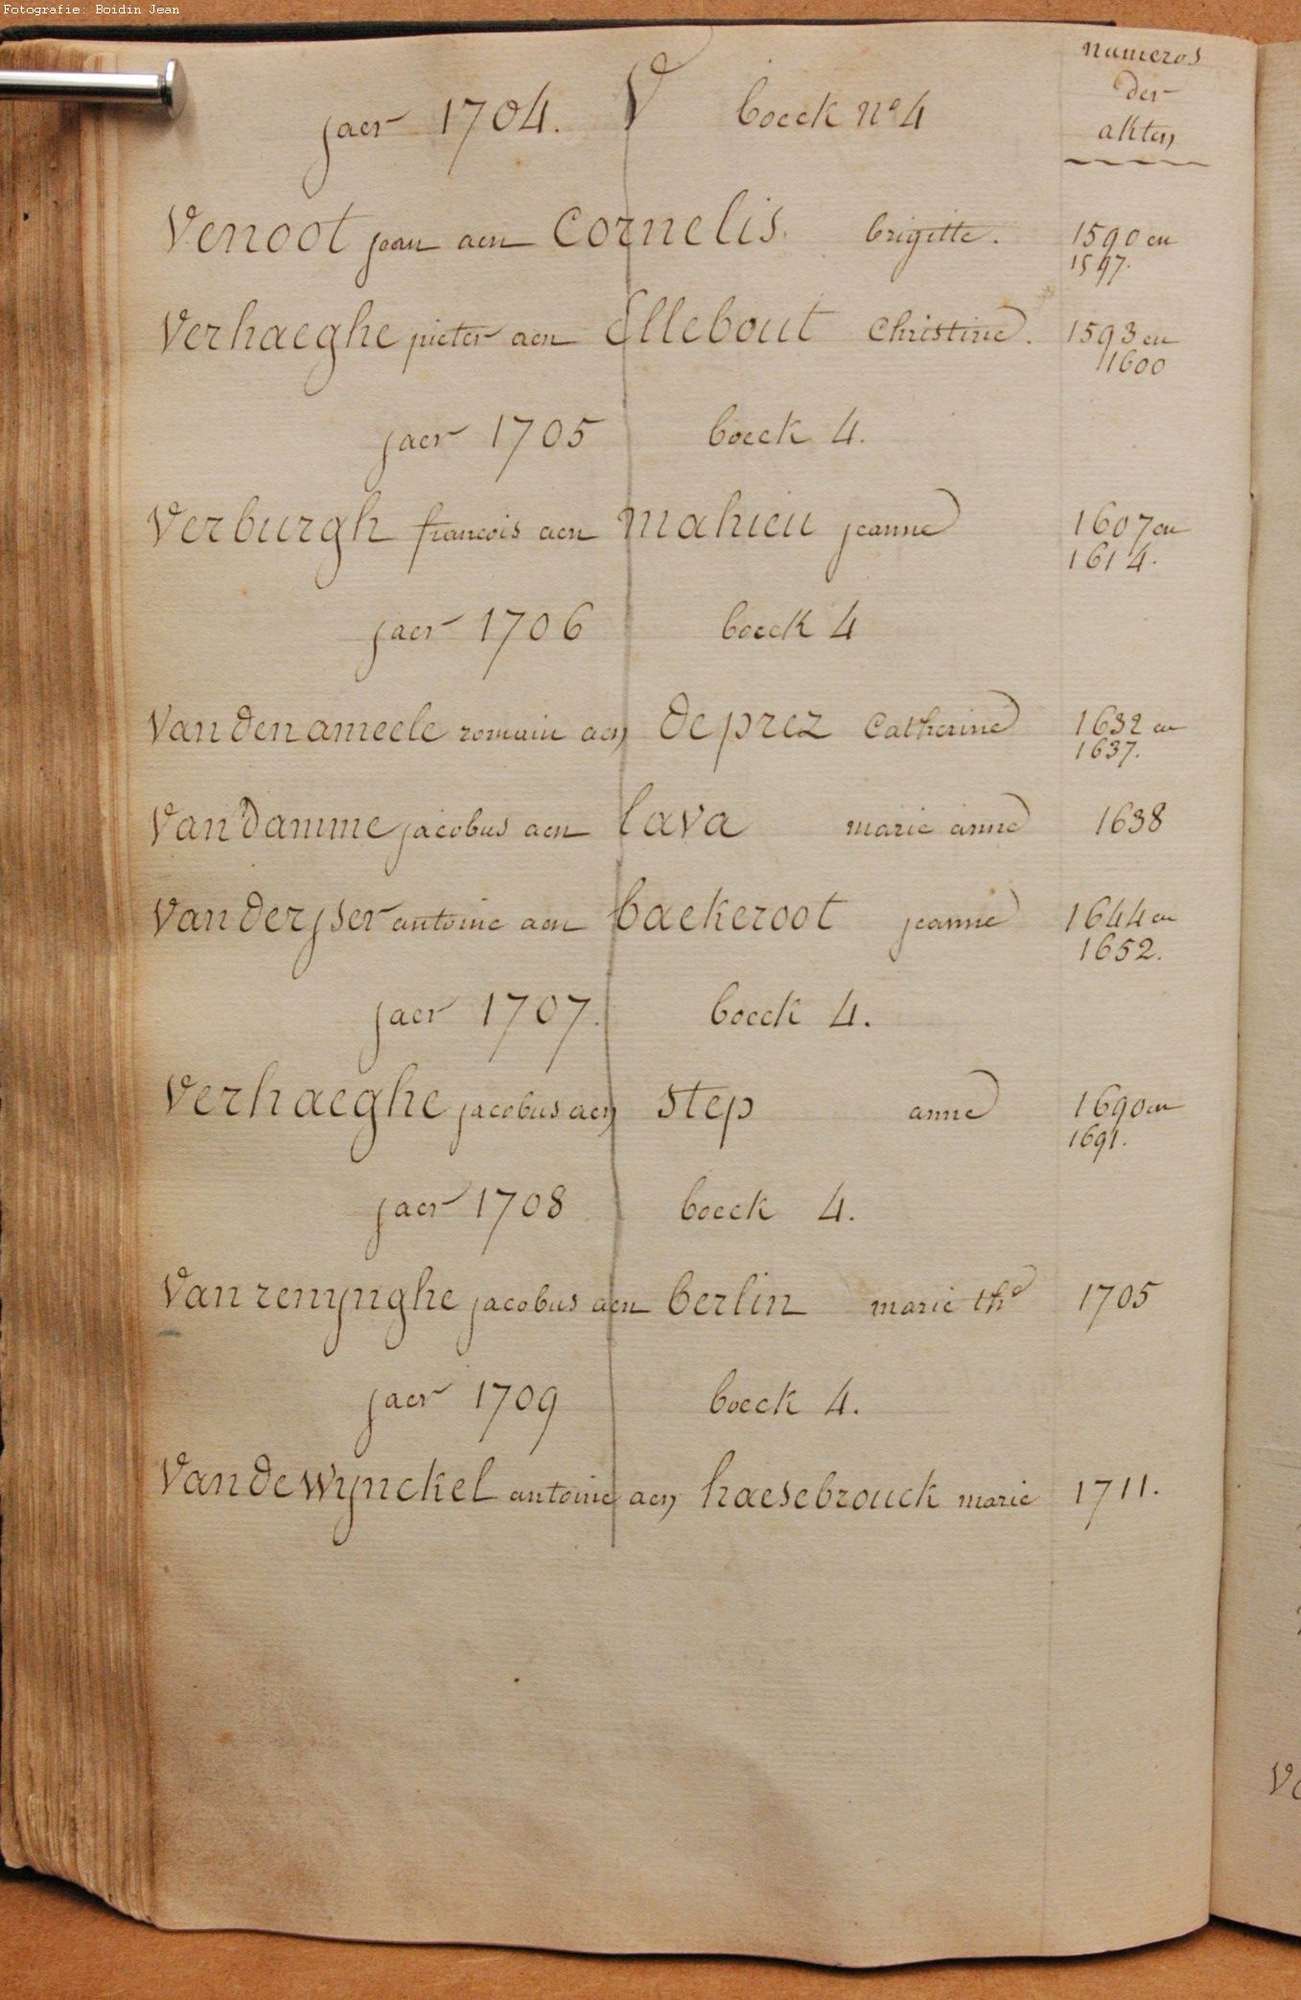 Fotografie: Boidin Jean
numeros
der
akten
jaer 1704. V boeck no 4
Venoot jean aen Cornelis. brigitte. 1590 en
1597.
Verhaeghe pieter aen Ellebout Christine. 1593 en
1600
jaer 1705 boeck 4.
Verburgh francois aen mahieu jeanne 1607 en
1614.
jaer 1706 boeck 4
Vandenameele romain aen deprez Catherine 1632 en
1637.
Vandamme jacobus aen lava marie anne 1638
Vanderyser antoine aen baekeroot jeanne 1644 en
1652.
jaer 1707. boeck 4.
Verhaeghe jacobus aen step anne 1690 en
1691.
jaer 1708 boeck 4.
Vanrenynghe jacobus aen berlin marie the 1705
jaer 1709 boeck 4.
Vandewynckel antoine aen haesebrouck marie 1711.